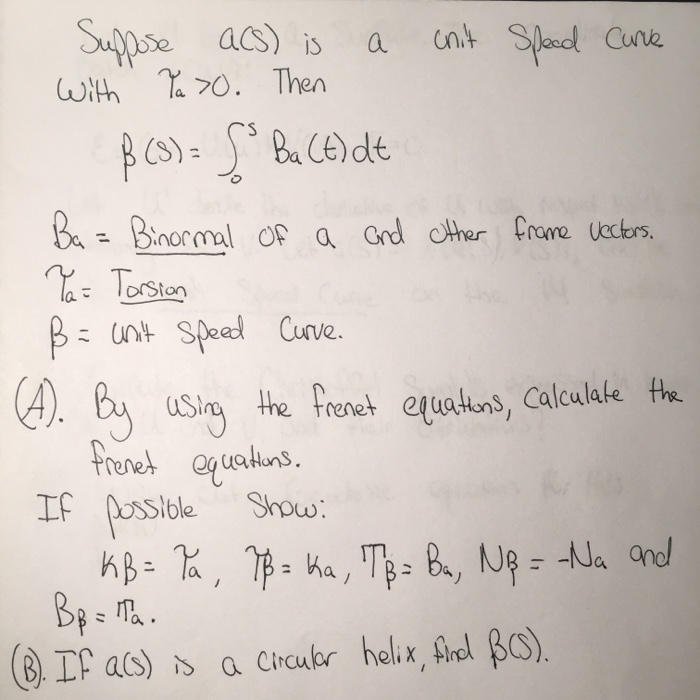 Suppose a(s) is a unit speed curve
with τa >0. Then
β(s) = ∫₀ˢ Ba(t)dt
Ba = Binormal of a and other frame vectors.
τa = Torsion
β = unit speed curve.
(A). By using the frenet equations, calculate the
frenet equations.
If possible show:
Kβ = τa, τβ = Ka, Tβ = Ba, Nβ = -Na and
Bβ = Ta.
(B). If a(s) is a circular helix, find β(s).